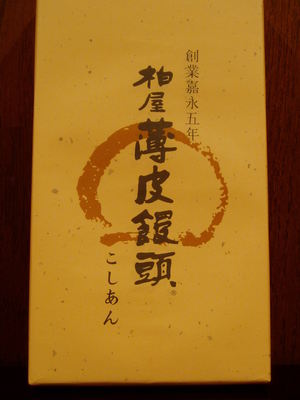 創業嘉永五年
柏屋薄皮饅頭®
こしあん